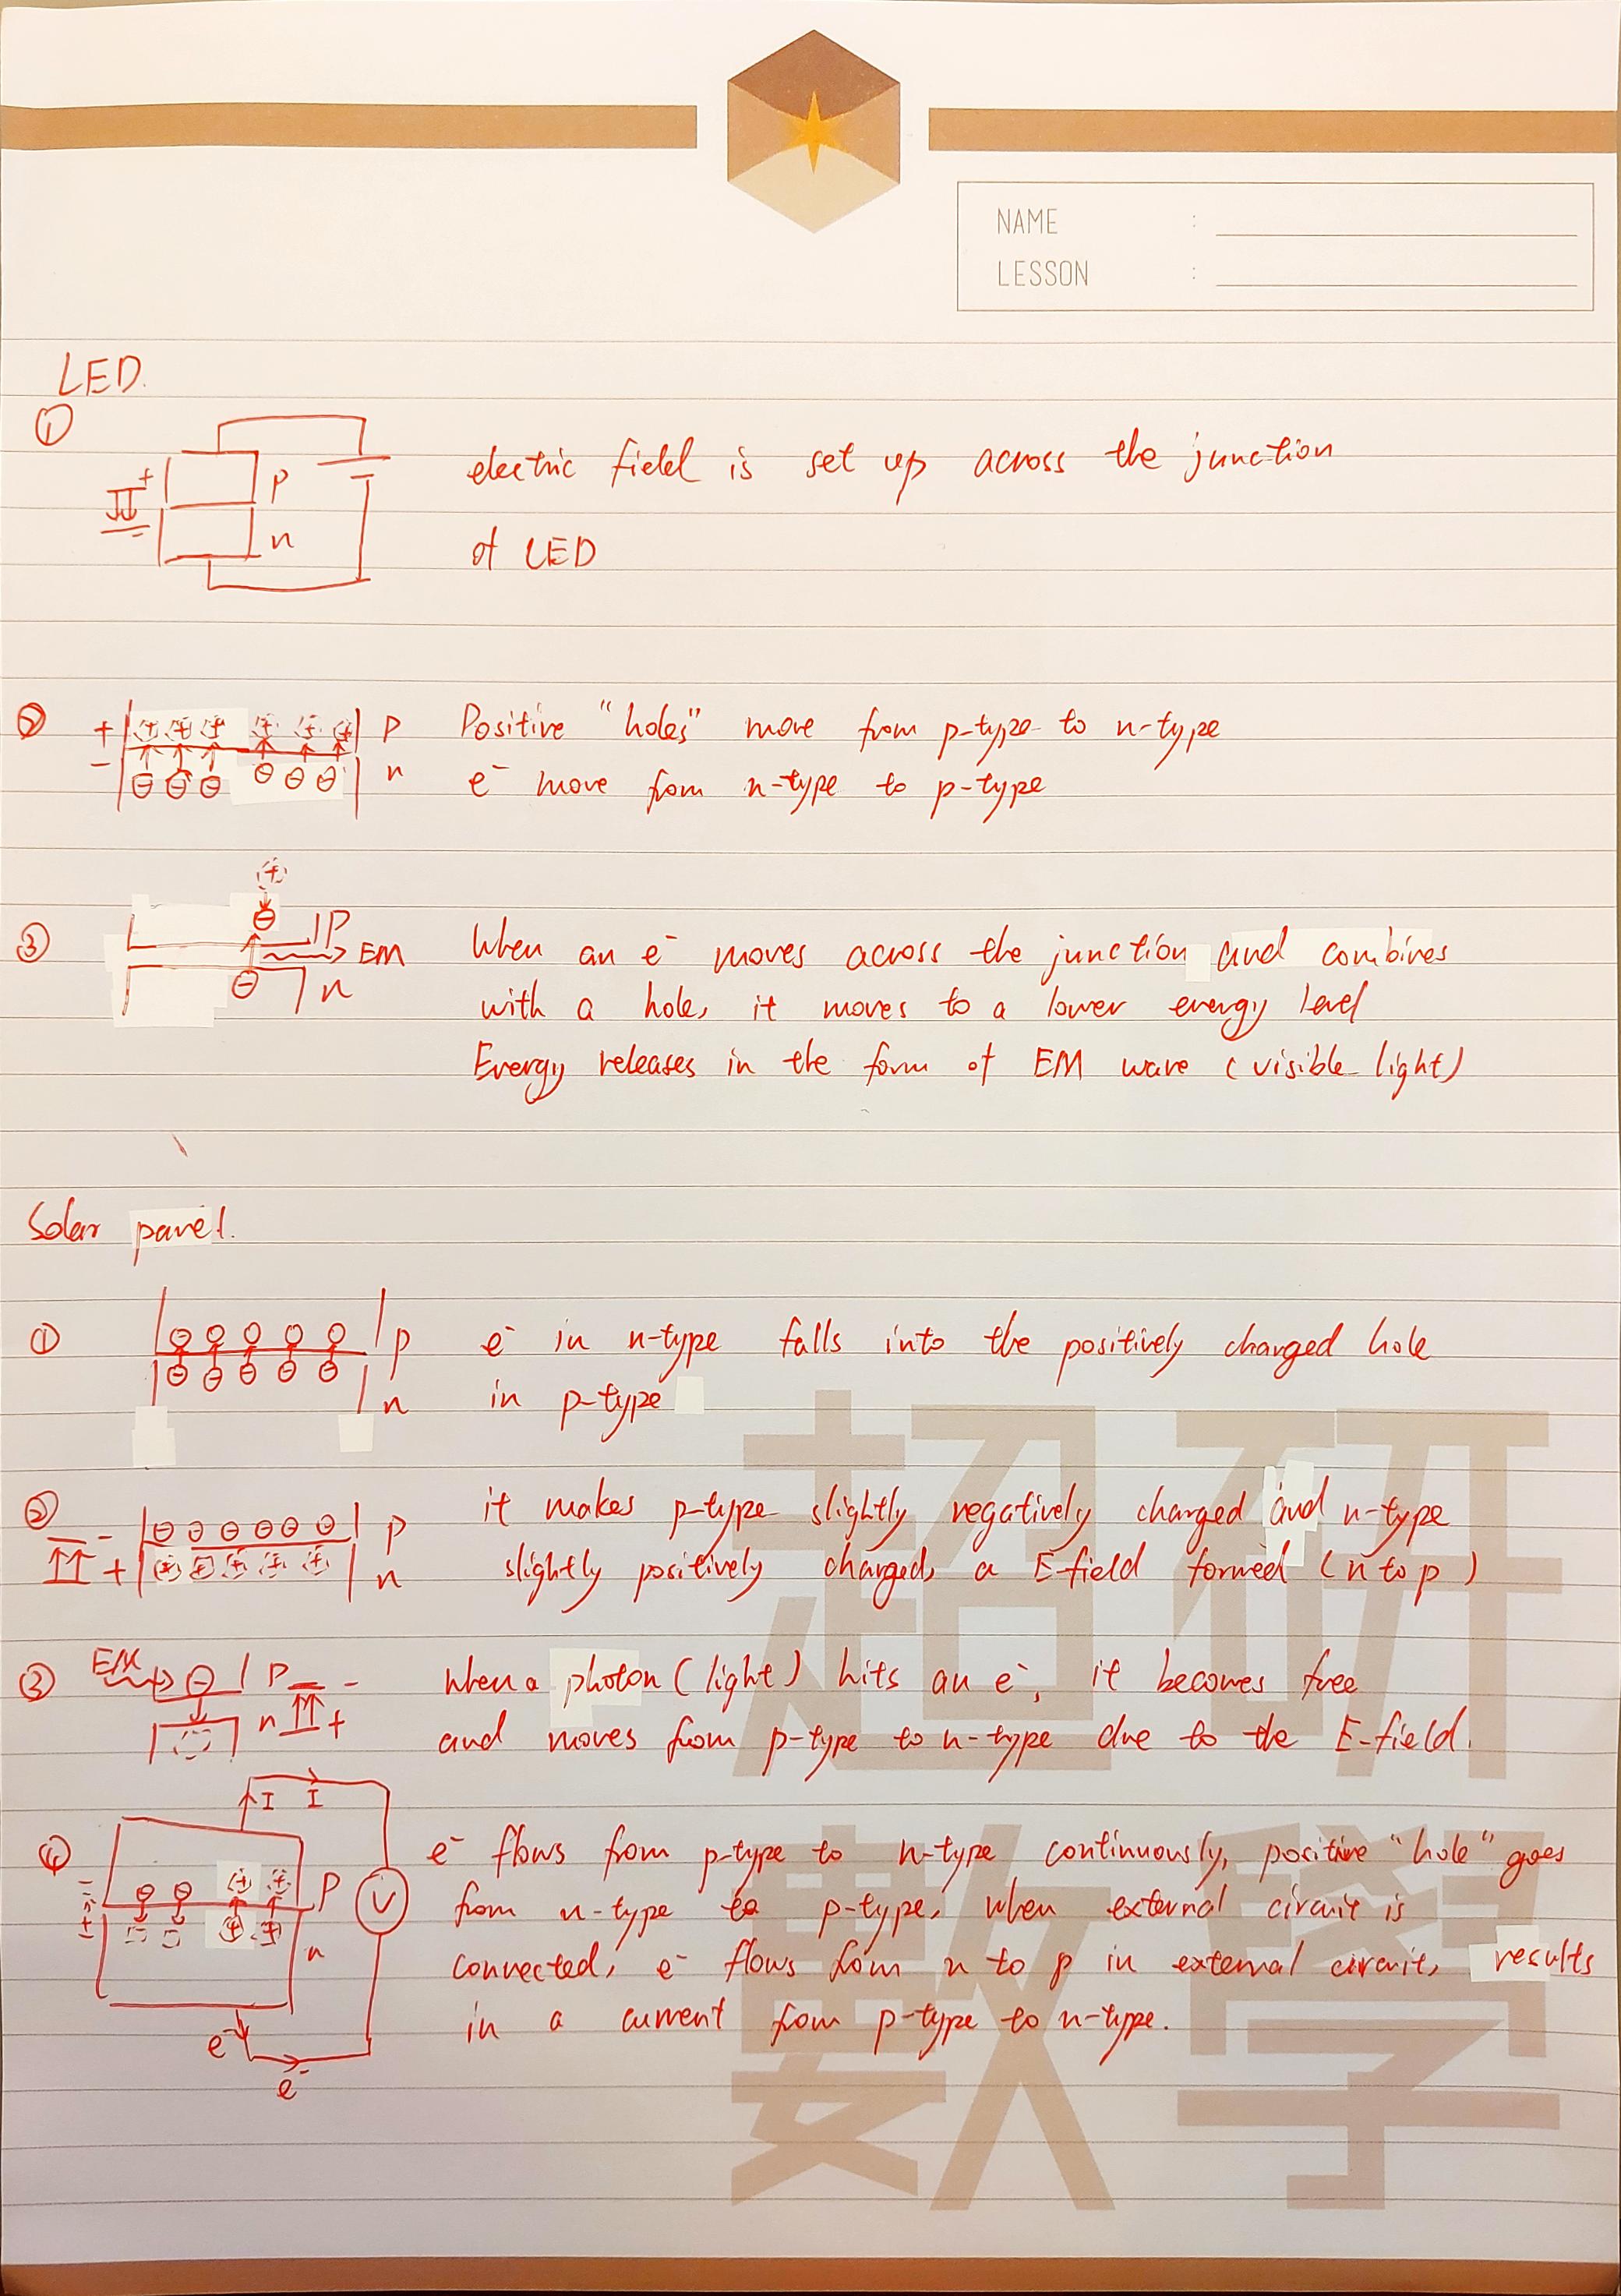 NAME :
LESSON :
LED.
①
+ p
n
electric field is set up across the junction
of LED
②
+ p
- n
Positive "holes" move from p-type to n-type
e⁻ move from n-type to p-type
③
P
EM
n
When an e⁻ moves across the junction and combines
with a hole, it moves to a lower energy level
Energy releases in the form of EM wave (visible light)
Solar panel.
①
p
n
e⁻ in n-type falls into the positively charged hole
in p-type
②
- p
+ n
it makes p-type slightly negatively charged and n-type
slightly positively charged, a E-field formed (n to p)
③
EM P -
n +
When a photon (light) hits an e⁻, it becomes free
and moves from p-type to n-type due to the E-field.
④
I I
p
V
n
e⁻
e⁻
e⁻ flows from p-type to n-type continuously, positive "hole" goes
from n-type to p-type, when external circuit is
connected, e⁻ flows from n to p in external circuit, results
in a current from p-type to n-type.
超研
數學